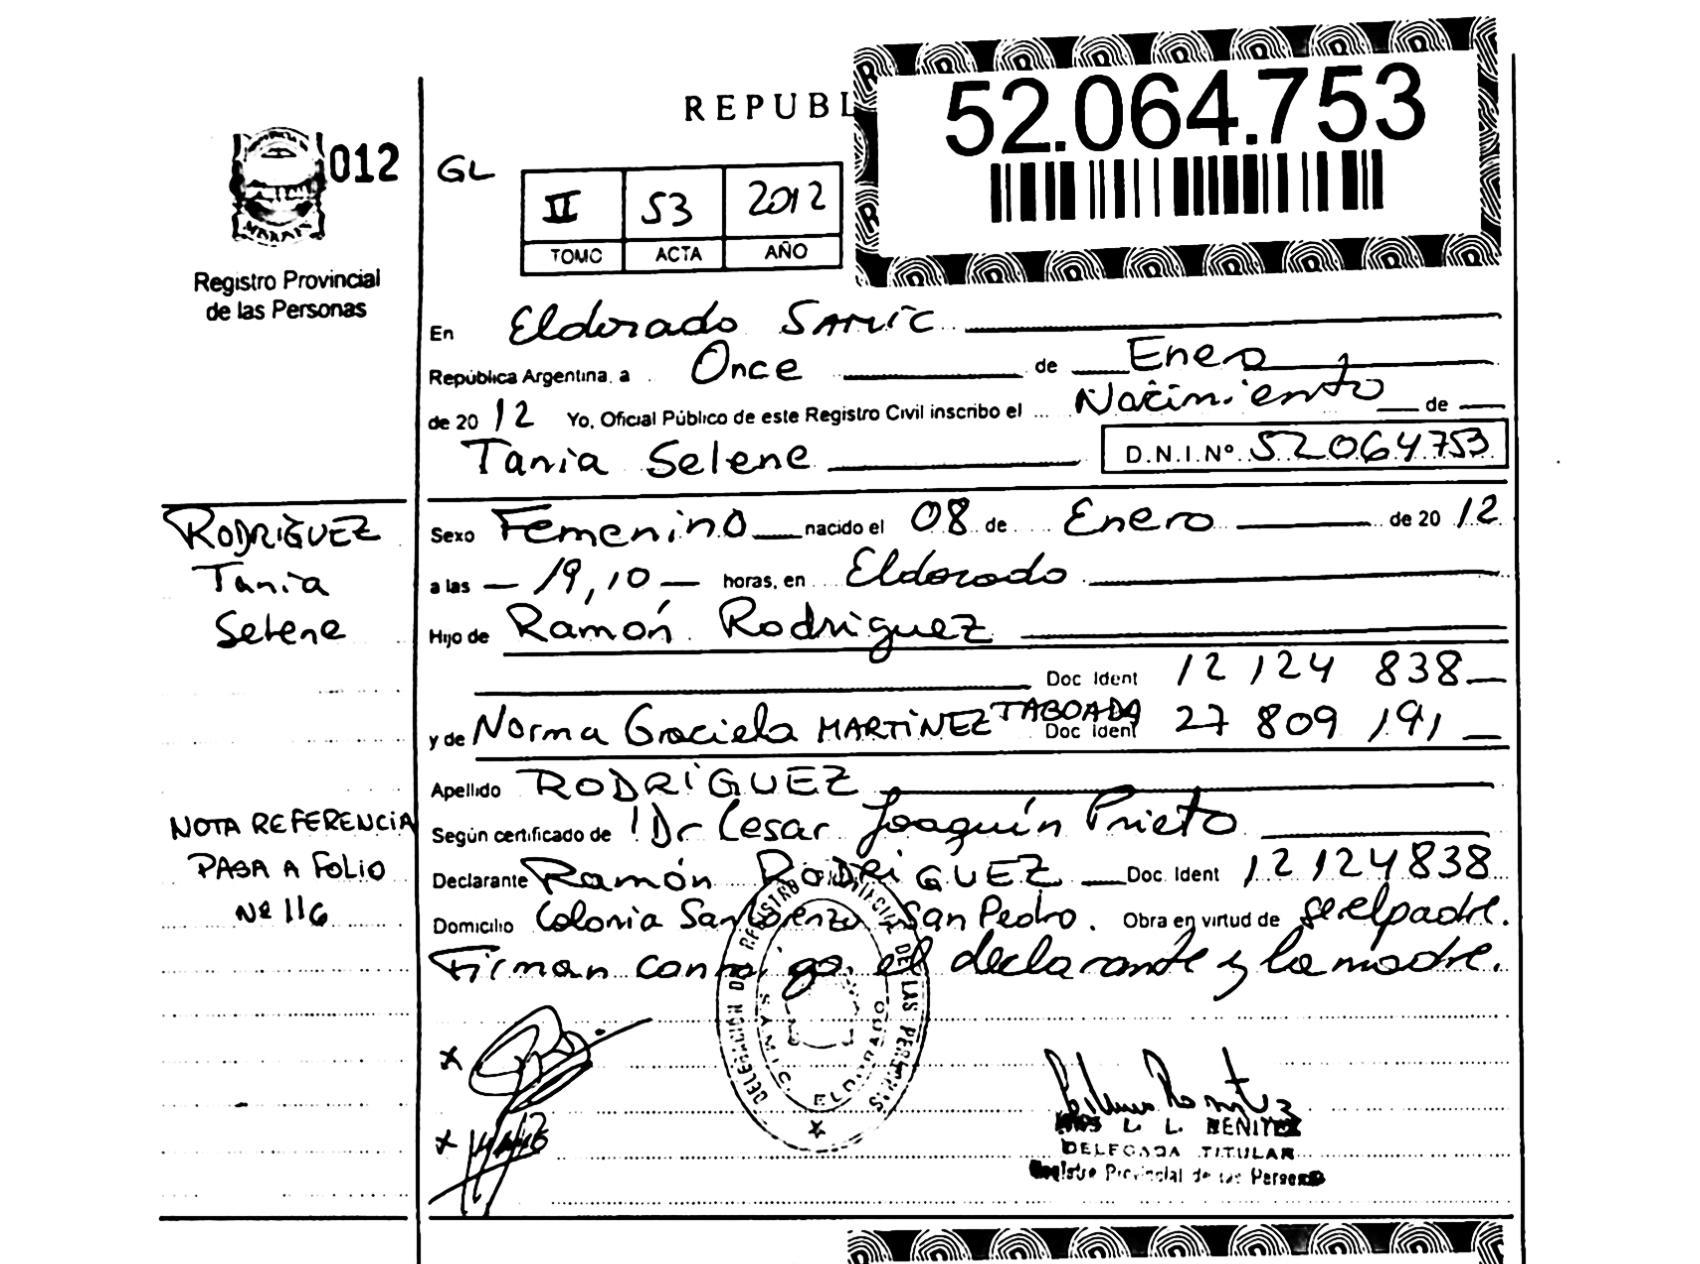 REPUBL
52.064.753
012
GL
II 53 2012
TOMO ACTA AÑO
Registro Provincial
de las Personas
En Eldorado SAMIC
República Argentina, a Once de Enero
de 2012 Yo, Oficial Público de este Registro Civil inscribo el Nacimiento de
Tania Selene D.N.I.Nº 52064753
RODRIGUEZ
Tania
Selene
Sexo Femenino nacido el 08 de Enero de 2012
a las 19,10 horas, en Eldorado
Hijo de Ramón Rodriguez
Doc Ident 12 124 838
y de Norma Graciela MARTíNEZ TABOADA Doc Ident 27 809 191
Apellido RODRíGUEZ
Según certificado de Dr Cesar Joaquín Prieto
Declarante Ramón RODRiGUEZ Doc. Ident 12124838
Domicilio Colonia San Lorenzo San Pedro. Obra en virtud de ser el padre.
Firman conmigo el declarante y la madre.
NOTA REFERENCIA
PASA A FOLIO
Nº 116
DELEGACIÓN DE REGISTRO PROVINCIAL DE LAS PERSONAS
SAMIC ELDORADO
L. BENITEZ
DELEGADA TITULAR
Registro Provincial de las Personas